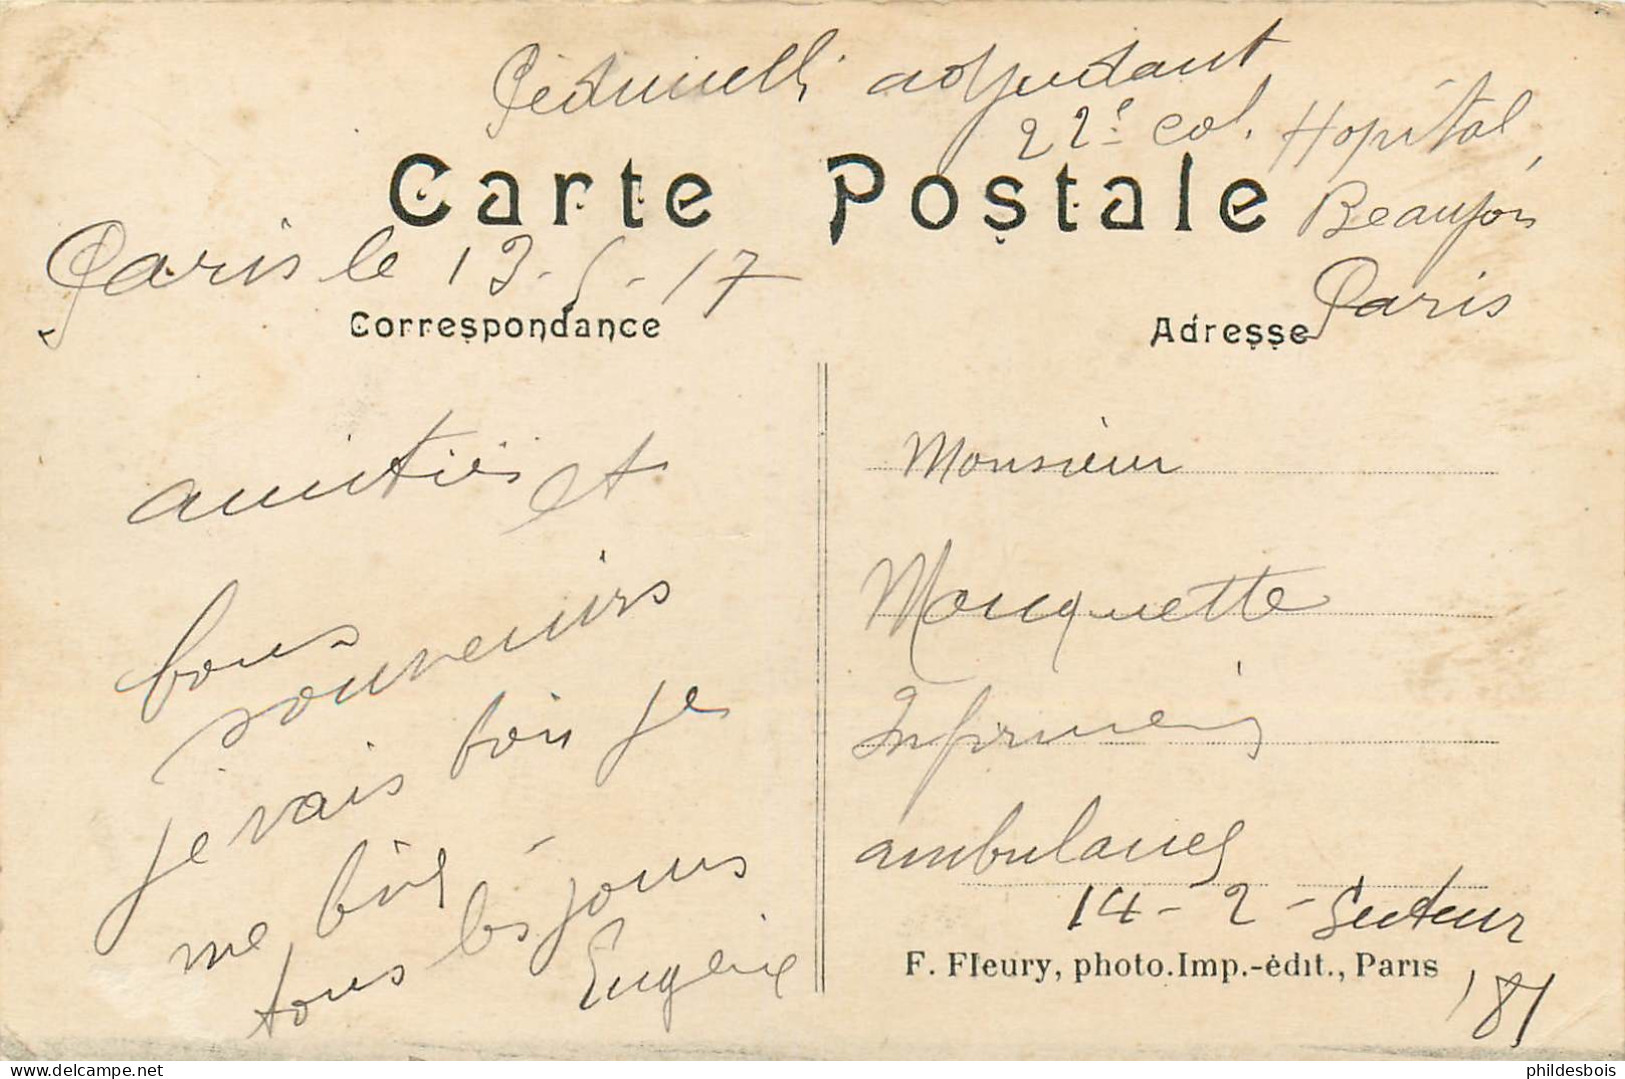 adjudant
22e col. Hopital
Beaujon
Paris
Carte Postale
Paris le 13-5-17
Correspondance
Adresse
amitiés et
bons
souvenirs
je vais bien je
me
tous les jours
Eugénie
Monsieur
Mouquette
Infirmier
ambulance
14 - 2 - Secteur
181
F. Fleury, photo.Imp.-édit., Paris
phildesbois